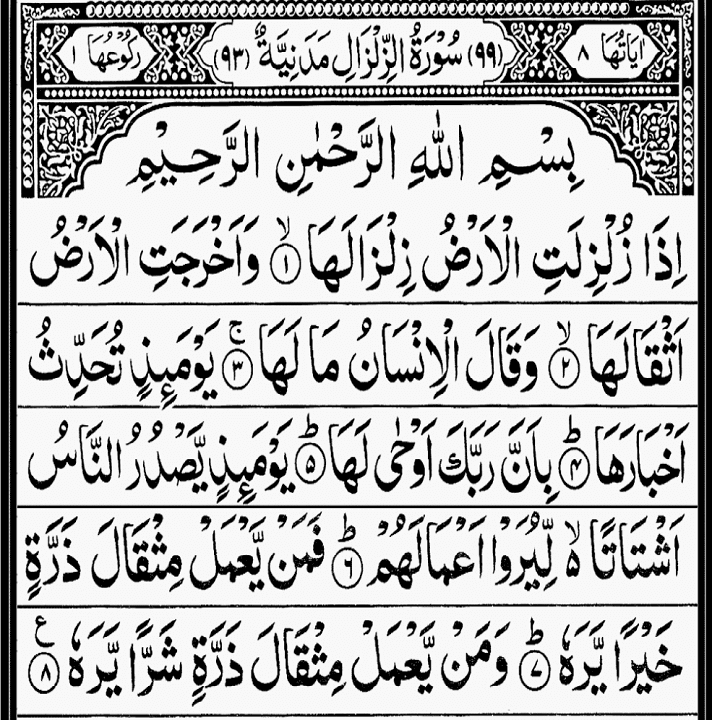 اٰيَاتُهَا ٨ (٩٩) سُوْرَةُ الزِّلْزَالِ مَدَنِيَّةٌ (٩٣) رُكُوْعُهَا ١
بِسْمِ اللّٰهِ الرَّحْمٰنِ الرَّحِيْمِ
اِذَا زُلْزِلَتِ الْاَرْضُ زِلْزَالَهَا ۙ‏﴿۱﴾ وَاَخْرَجَتِ الْاَرْضُ
اَثْقَالَهَا ۙ‏﴿۲﴾ وَقَالَ الْاِنْسَانُ مَا لَهَا ۚ‏﴿۳﴾ يَوْمَئِذٍ تُحَدِّثُ
اَخْبَارَهَا ؕ‏﴿۴﴾ بِاَنَّ رَبَّكَ اَوْحٰى لَهَا ؕ‏﴿۵﴾ يَوْمَئِذٍ يَّصْدُرُ النَّاسُ
اَشْتَاتًا ۙ۬ لِّيُرَوْا اَعْمَالَهُمْ ؕ‏﴿۶﴾ فَمَنْ يَّعْمَلْ مِثْقَالَ ذَرَّةٍ
خَيْرًا يَّرَهٗ ؕ‏﴿۷﴾ وَمَنْ يَّعْمَلْ مِثْقَالَ ذَرَّةٍ شَرًّا يَّرَهٗ ﴿۸﴾ ع